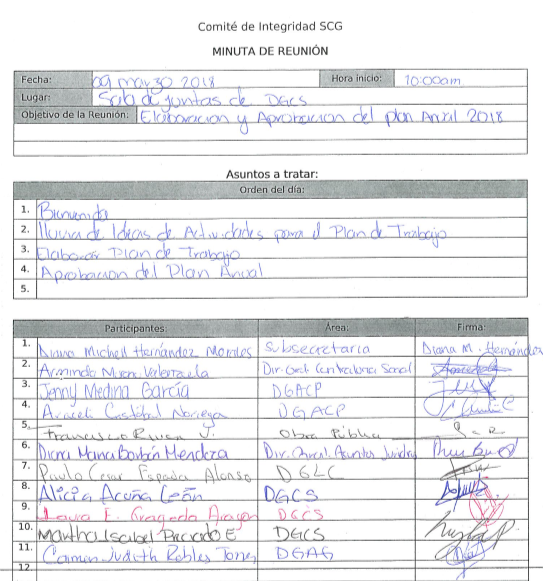 Comité de Integridad SCG
MINUTA DE REUNIÓN
Fecha: 09 marzo 2018 Hora inicio: 10:00am
Lugar: Sala de juntas de DGCS
Objetivo de la Reunión: Elaboracion y Aprobacion del plan Anual 2018
Asuntos a tratar:
Orden del día:
1. Bienvenida
2. lluvia de Ideas de Actividades para el Plan de Trabajo
3. Elaborar Plan de Trabajo
4. Aprobacion del Plan Anual
5.
Participantes: Área: Firma:
1. Diana Michell Hernández Morales Subsecretaria Diana M. Hernández
2. Armando Valenzuela Dir. Gral Contraloria Social
3. Jenny Medina García DGACP
4. Araceli Cristobal Noriega DGACP
5. Francisco J. Obra Pública
6. Diana Maria Borbón Mendoza Dir. Gral. Asuntos
7. Paulo Cesar Espada Alonso DGLC
8. Alicia Acuña León DGCS
9. Laura E. Grageda DGCS
10. Martha Isabel E DGCS
11. Carmen Judith Robles Torres DGAG
12.